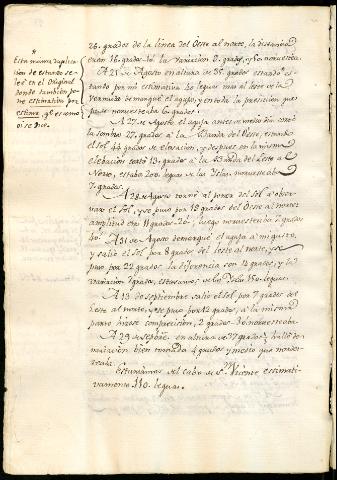 *
Esta misma duplica
cion de estando se
leé en el Original
donde tambien po
ne estimativa por
estima, qe es como
oi se dice.
26. grados de la linea del Oeste al norte, la distancia
eran 16. grados la variacion 5. grados, y 50. norueste
A 25 de Agosto en altura de 35. grados estando es
tando por mi estimativa 60 leguas mas al leste de la
vermuda demarqué el aguja, y estotra la precision que
pude noruesteaba 6. grados
A 27 de Agosto el aguja antes de medio dia
la sombra 27. grados á la banda del Oeste, estando
el sol 44 grados de elevacion, y despues en la misma
elebacion cortó 13. grados á la banda del Leste al
Norte, estaba 200. leguas de las Yslas, noruesteaba
7. grados
A 28 de Agosto torné al poner del sol á obser
var el sol, y se puso por 18 grados del Oeste al norte
amplitud eran 11 grados luego noruesteaba 7. grados
A 31 de Agosto demarqué el aguja á mi gusto,
y salió el sol por 8 grados del leste al norte, y se
puso por 22 grados la diferencia son 14. grados, y la
variacion 7 grados, estariamos de las Yslas 150. leguas.
A 13 de septiembre salió el sol por 7 grados del
leste al norte, y se puso por 12 grados, á la misma
parte hicese computacion, 2 grados 30 noruesteaba
A 29 de septbre. en altura de 37 grados y hallo de
marcacion bien tomada 4 grados y medio que nordes
teaba
Estariamos del cabo de Sn. Vicente estimati
vamente 110. leguas.